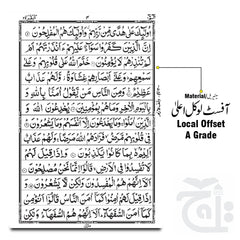 اُولٰٓئِكَ عَلٰى هُدًى مِّنْ رَّبِّهِمْ وَاُولٰٓئِكَ هُمُ الْمُفْلِحُوْنَ
اِنَّ الَّذِيْنَ كَفَرُوْا سَوَآءٌ عَلَيْهِمْ ءَاَنْذَرْتَهُمْ اَمْ
لَمْ تُنْذِرْهُمْ لَا يُؤْمِنُوْنَ خَتَمَ اللّٰهُ عَلٰى قُلُوْبِهِمْ وَعَلٰى
سَمْعِهِمْ وَعَلٰٓى اَبْصَارِهِمْ غِشَاوَةٌ وَّلَهُمْ عَذَابٌ
عَظِيْمٌ وَمِنَ النَّاسِ مَنْ يَّقُوْلُ اٰمَنَّا بِاللّٰهِ وَ
بِالْيَوْمِ الْاٰخِرِ وَمَا هُمْ بِمُؤْمِنِيْنَ يُخٰدِعُوْنَ اللّٰهَ وَ
الَّذِيْنَ اٰمَنُوْا وَمَا يَخْدَعُوْنَ اِلَّآ اَنْفُسَهُمْ وَمَا يَشْعُرُوْنَ
فِيْ قُلُوْبِهِمْ مَّرَضٌ فَزَادَهُمُ اللّٰهُ مَرَضًا وَلَهُمْ عَذَابٌ
اَلِيْمٌ بِمَا كَانُوْا يَكْذِبُوْنَ وَاِذَا قِيْلَ لَهُمْ
لَا تُفْسِدُوْا فِى الْاَرْضِ قَالُوْٓا اِنَّمَا نَحْنُ مُصْلِحُوْنَ
اَلَآ اِنَّهُمْ هُمُ الْمُفْسِدُوْنَ وَلٰكِنْ لَّا يَشْعُرُوْنَ وَ
اِذَا قِيْلَ لَهُمْ اٰمِنُوْا كَمَآ اٰمَنَ النَّاسُ قَالُوْٓا اَنُؤْمِنُ
كَمَآ اٰمَنَ السُّفَهَآءُ اَلَآ اِنَّهُمْ هُمُ السُّفَهَآءُ وَلٰكِنْ لَّا
Material
آفسٹ لوکل اعلیٰ
Local Offset
A Grade